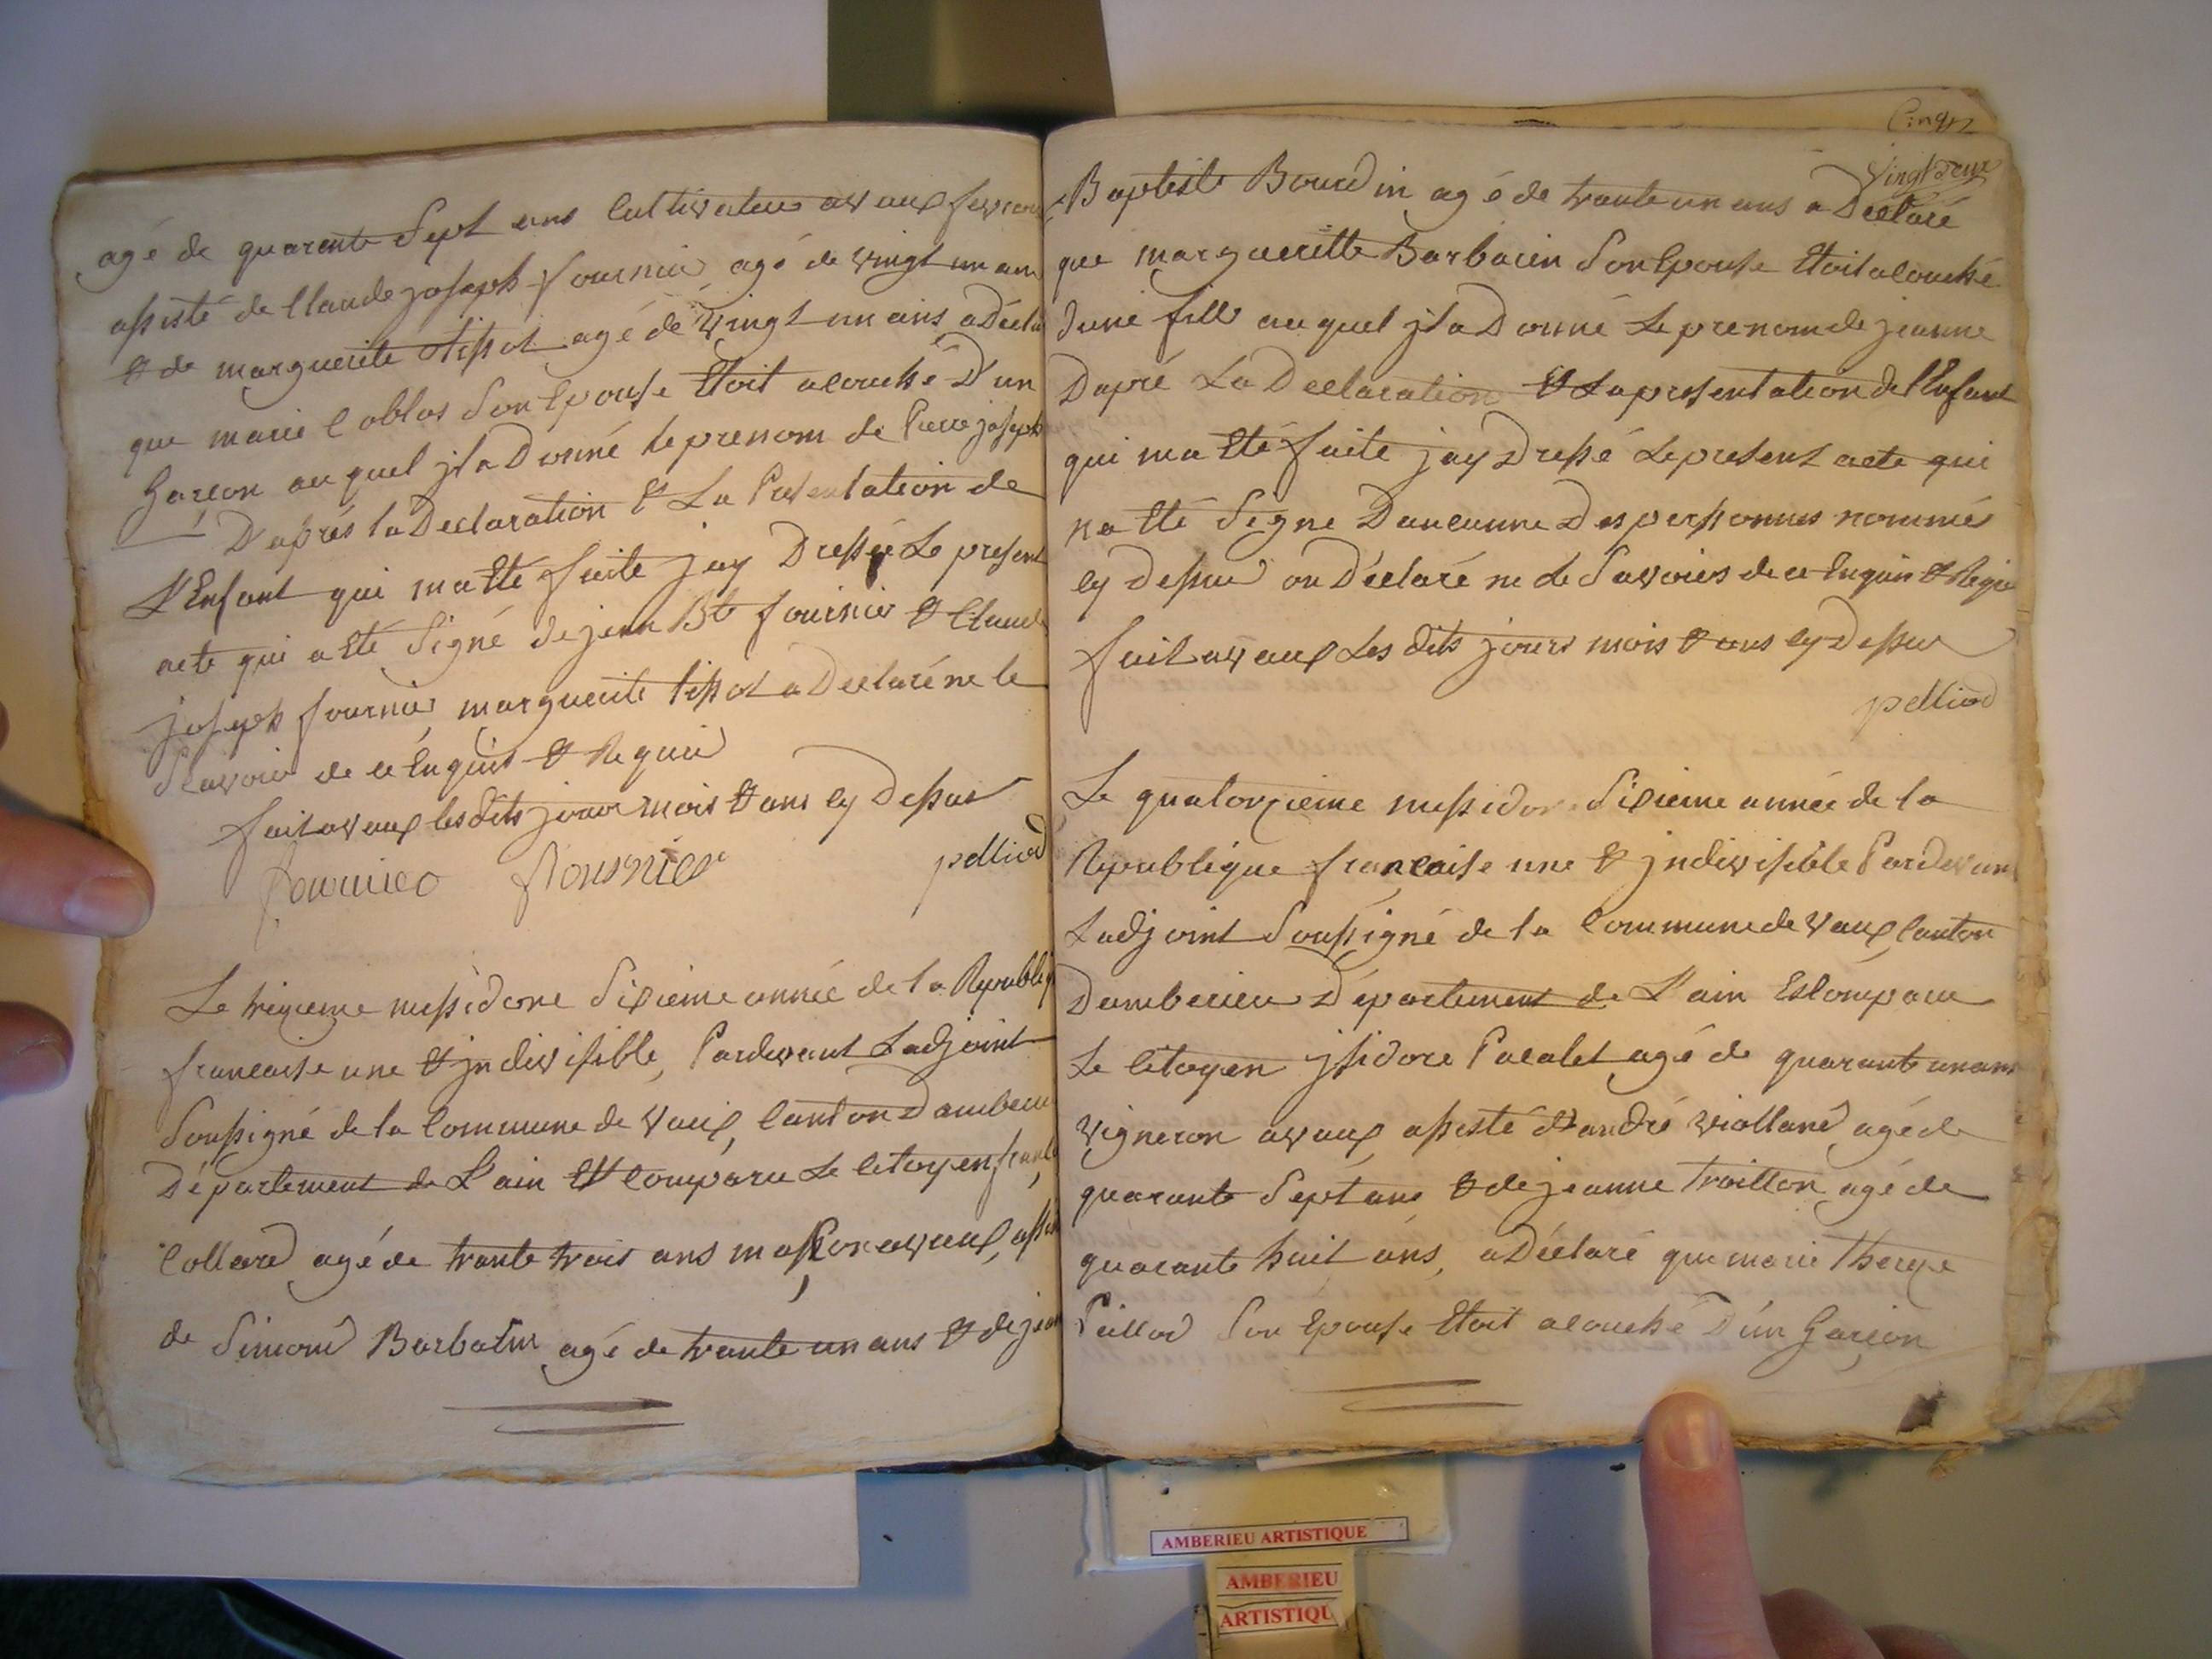 agé de quarente Sept ans Cultivateur avaux fevron
assisté de Claude joseph fournier agé de vingt un an
& de marguerite tissot agé de vingt un ans a Décla
que marie Coblas Son Epouse Etoit acouché D'un
Garcon auquel jl a Donné le prenom de Pierre joseph
D'aprés la Declaration & La Presentation de
L'Enfant qui ma Eté faite jay Dressée Le present
acte qui a Eté Signé de jean Bte fournier & Claude
joseph fournier marguerite tissot a Declaré ne le
Scavoir de ce Enquis & Requis
fait avaux les dits jour mois & ans cy Dessus
fournier fournier pelliod
Le trizieme messidore Sixieme année de la Republiq
francaise une & jndivisible, Pardevant Ladjoint
Soussigné de la Commune de Vaux, Canton Damberieu
Département de L'ain Est Comparu Le Citoyen
Collard agé de trante trois ans masson avaux, assis
de Simond Barbarin agé de trante un ans & de jean
Cinq
Vingt deux
Baptiste Bourdin agé de trante un ans a Déclaré
que margueritte Barbarin Son Epouse Etoit acouché
dune fille auquel jl a Donné Le prenom de jeanne
Dapré La Declaration & La presentation de l'Enfant
qui ma Eté faite jay Dressé Le present acte qui
na Eté Signe Daucunne Des perssonnes nommés
cy Dessus on Déclaré ne Le Savoirs de ce Enquis & Requi
fait avaux Les dits jours mois & ans cy Dessus
pelliod
Le quatorzieme messidor Sixieme année de la
Republique francaise une & jndivisible Pardevant
Ladjoint Soussigné de la Commune de Vaux Canton
Damberieu Département de L'ain Est Comparu
Le Citoyen jsidore Pacalet agé de quarante un ans
Vigneron avaux assisté d'andré Violland agé de
quarante Sept ans & de jeanne Troillon agé de
quarante huit ans, a Déclaré que marie therese
Peillod Son Epouse Etoit acouché D'un Garçon
AMBERIEU ARTISTIQUE
AMBERIEU
ARTISTIQU